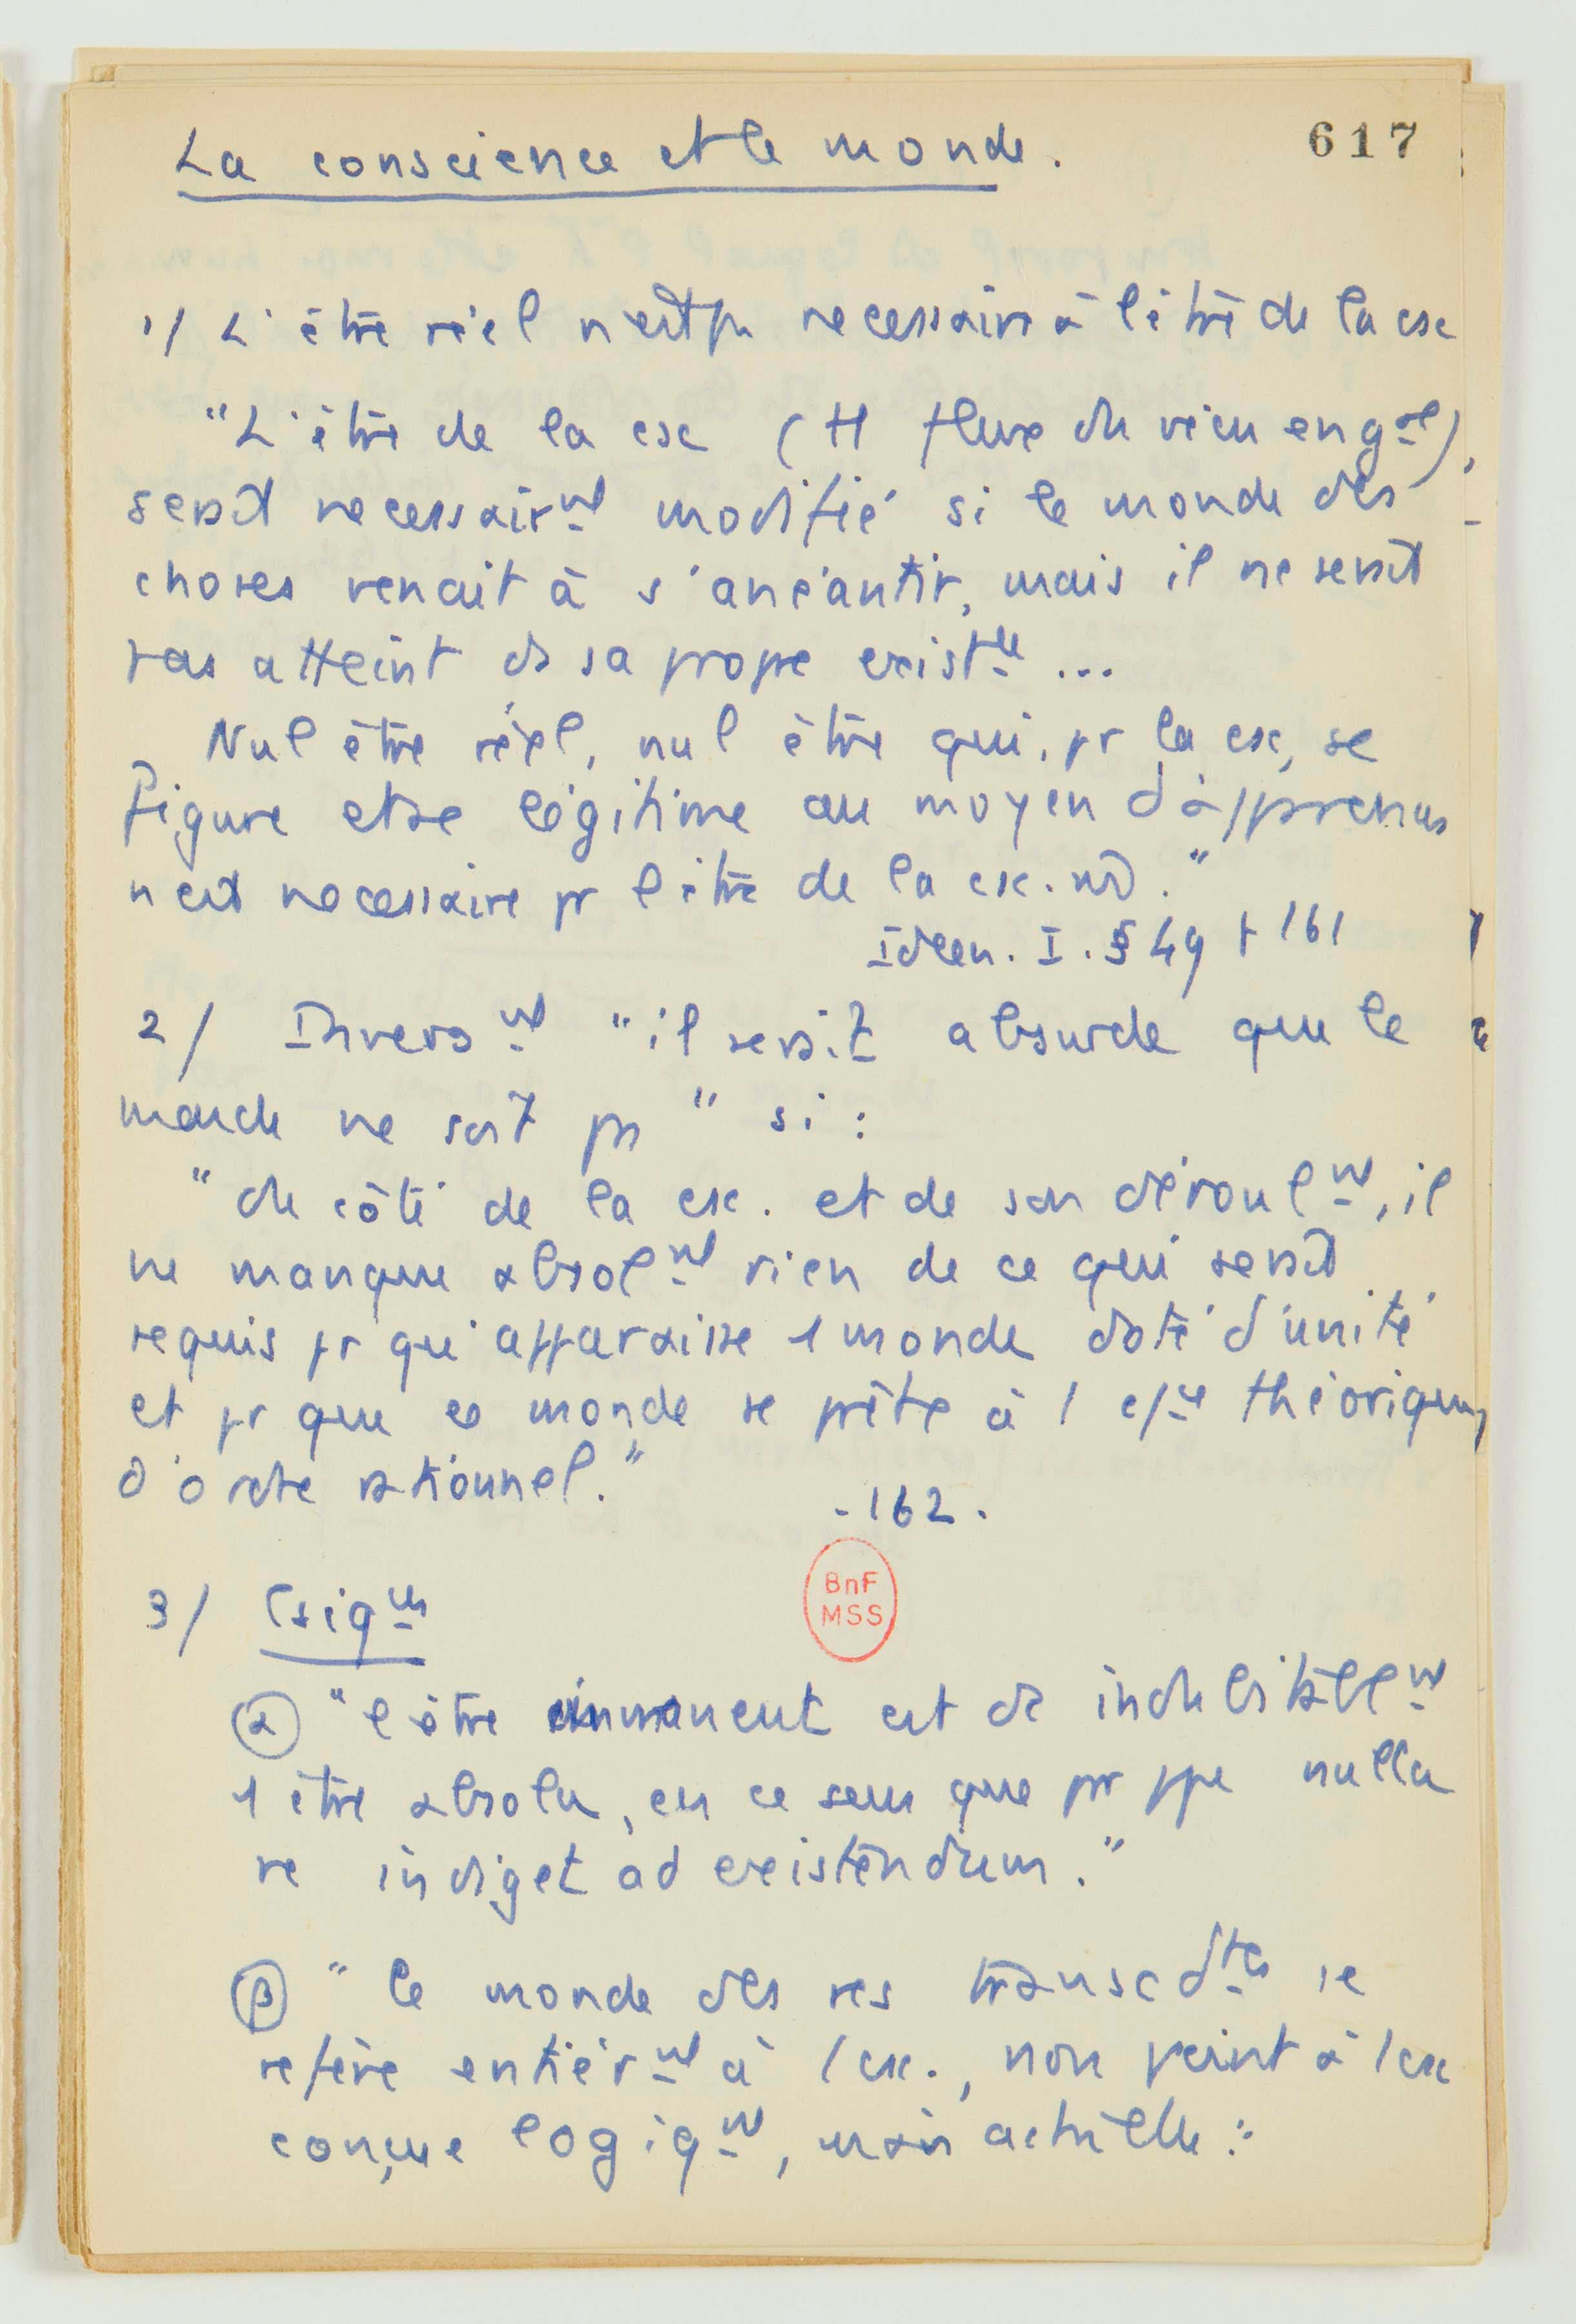 La conscience et le monde.
617
1/ L'être réel n'est pas necessaire à l'être de la csc
"L'être de la csc (tt flux du vécu en gal),
serait necessairmt modifié si le monde des
choses venait à s'anéantir, mais il ne serait
pas atteint ds sa propre existce ...
Nul être réel, nul être qui, pr la csc, se
figure et se légitime au moyen d'apparences
n'est necessaire pr l'être de la csc.
Ideen. I. § 49 p 161
2/ Inversmt "il serait absurde que le
monde ne soit pas" si :
"du côté de la csc. et de son déroulmt, il
ne manque absolmt rien de ce qui serait
requis pr qu'apparaisse 1 monde doté d'unité
et pr que ce monde se prête à 1 théorique,
d'ordre rationnel."
- 162.
3/ Csiqces
BnF
MSS
α "l'être immanent est dc indubitablmt
1 être absolu, en ce sens que par ppe nulla
re indiget ad existendum."
β "le monde des res transcdtes se
refère entièrmt à 1 csc., non point à 1 csc
conçue logiqmt, mais actuelle :